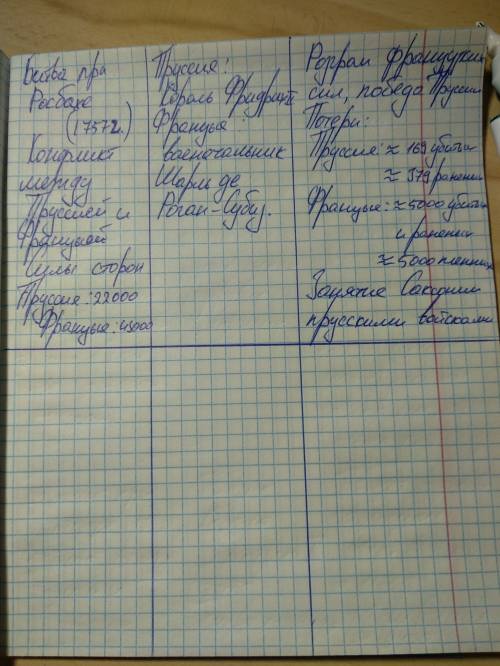 Битва при
Росбахе
(1757г.)
Конфликт
между
Пруссией и
Францией
Силы сторон
Пруссия: 22000
Франция: 45000
Пруссия:
Король Фридрих
Франция:
военачальник
Шарль де
Роган-Субиз.
Разгром французких
сил, победа Пруссии
Потери:
Пруссия: ≈ 169 убитых
≈ 379 ранены
Франция: ≈ 5000 убитых
и раненых
≈ 5000 пленных
Занятие Саксонии
прусскими войсками